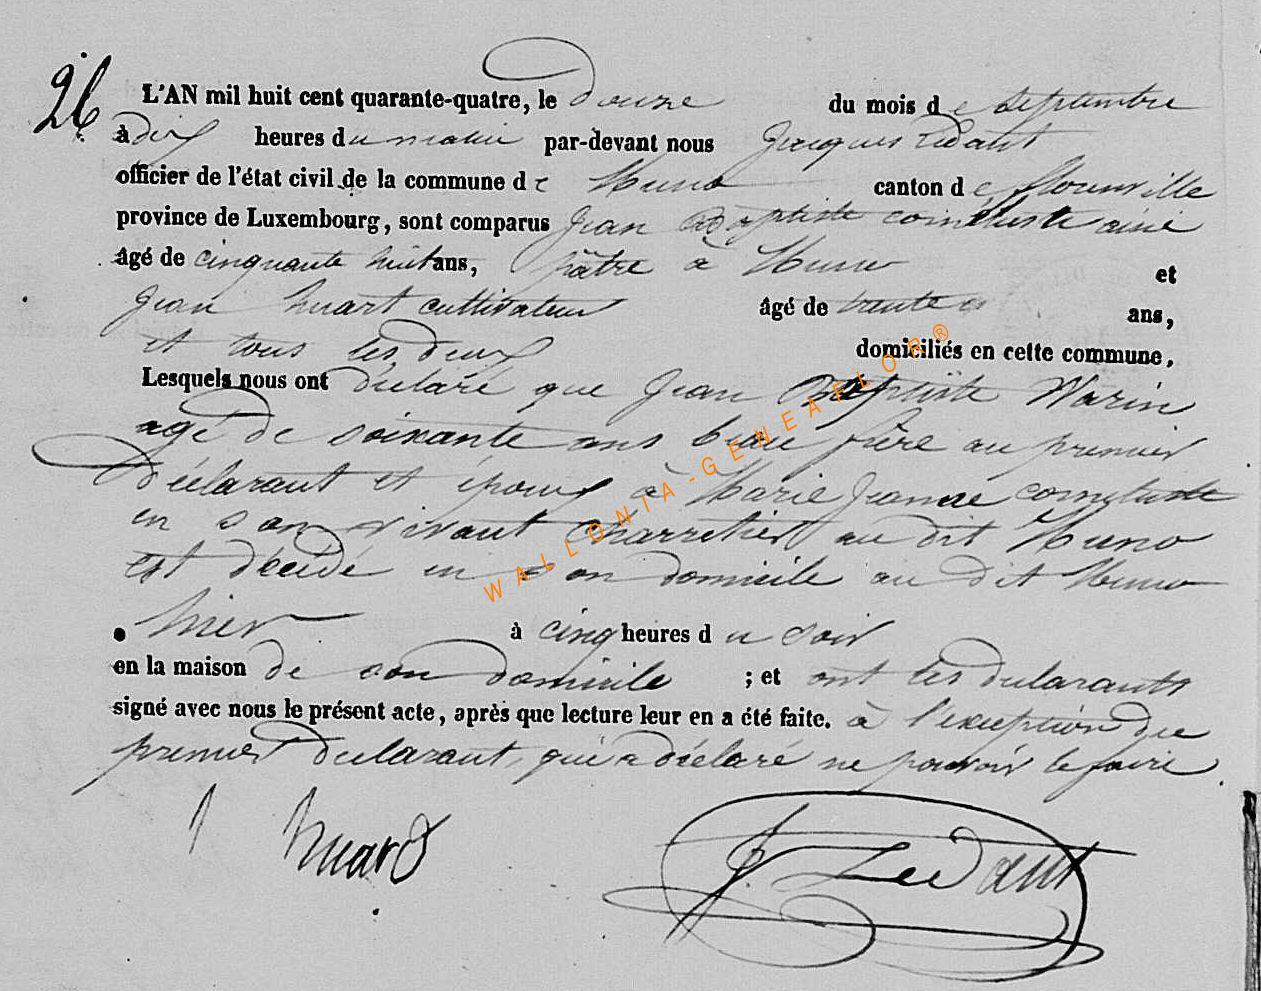 26
L'AN mil huit cent quarante-quatre, le douze du mois de Septembre
à dix heures du matin par-devant nous Jacques Ledant
officier de l'état civil de la commune de Muno canton de florenville
province de Luxembourg, sont comparus Jean Baptiste ainé
âgé de cinquante huit ans, pâtre à Muno et
Jean huart cultivateur âgé de trente ans,
et tous les deux domiciliés en cette commune.
Lesquels nous ont déclaré que Jean Baptiste Warin
agé de soixante ans beau frère au premier
déclarant et époux à Marie Jeanne
en son vivant charretier au dit Muno
est décédé en son domicile au dit Muno
hier à cinq heures du soir
en la maison de son domicile ; et ont les déclarants
signé avec nous le présent acte, après que lecture leur en a été faite. à l'exception du
premier déclarant, qui a déclaré ne pouvoir le faire.
huard J. Ledant
WALLONIA-GENEAFLOR®